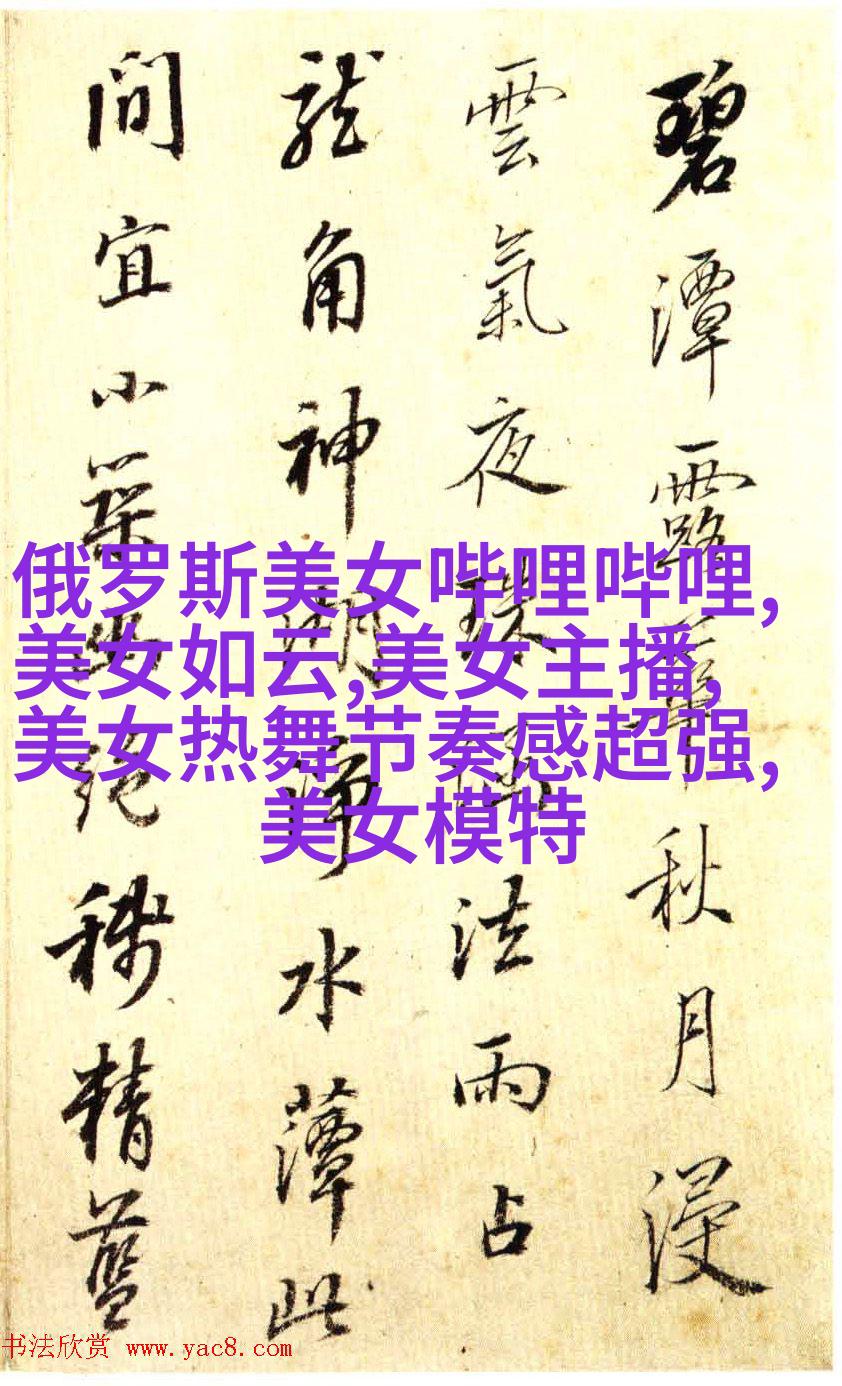 碧潭露華秋月浸
雲氣夜珠法雨占
龍角神明淨水藫此
間宜小築幽絕稱精藍
俄罗斯美女哔哩哔哩,
美女如云,美女主播,
美女热舞节奏感超强,
美女模特
书法欣赏 www.yac8.com